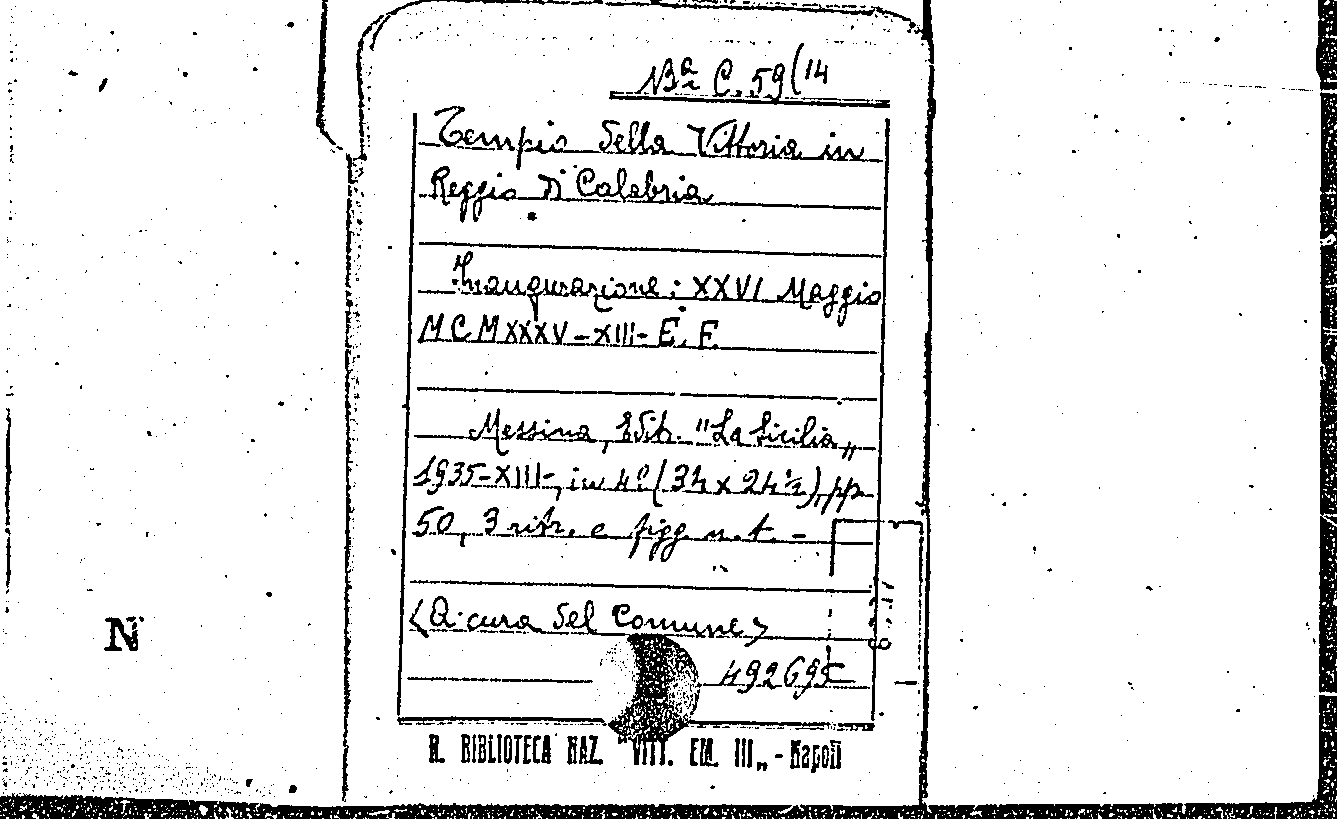 Bª C. 59(14
Tempio della Vittoria in
Reggio di Calabria
Inaugurazione: XXVI Maggio
MCMXXXV-XIII-E.F.
Messina, Edit. "La Sicilia„
1935-XIII-, in 4º (34 x 24½), pp
50, 3 ritr. e figg. n. t. -
<A cura del Comune>
492695
N
R. BIBLIOTECA NAZ. "VITT. EM. III„ - Napoli